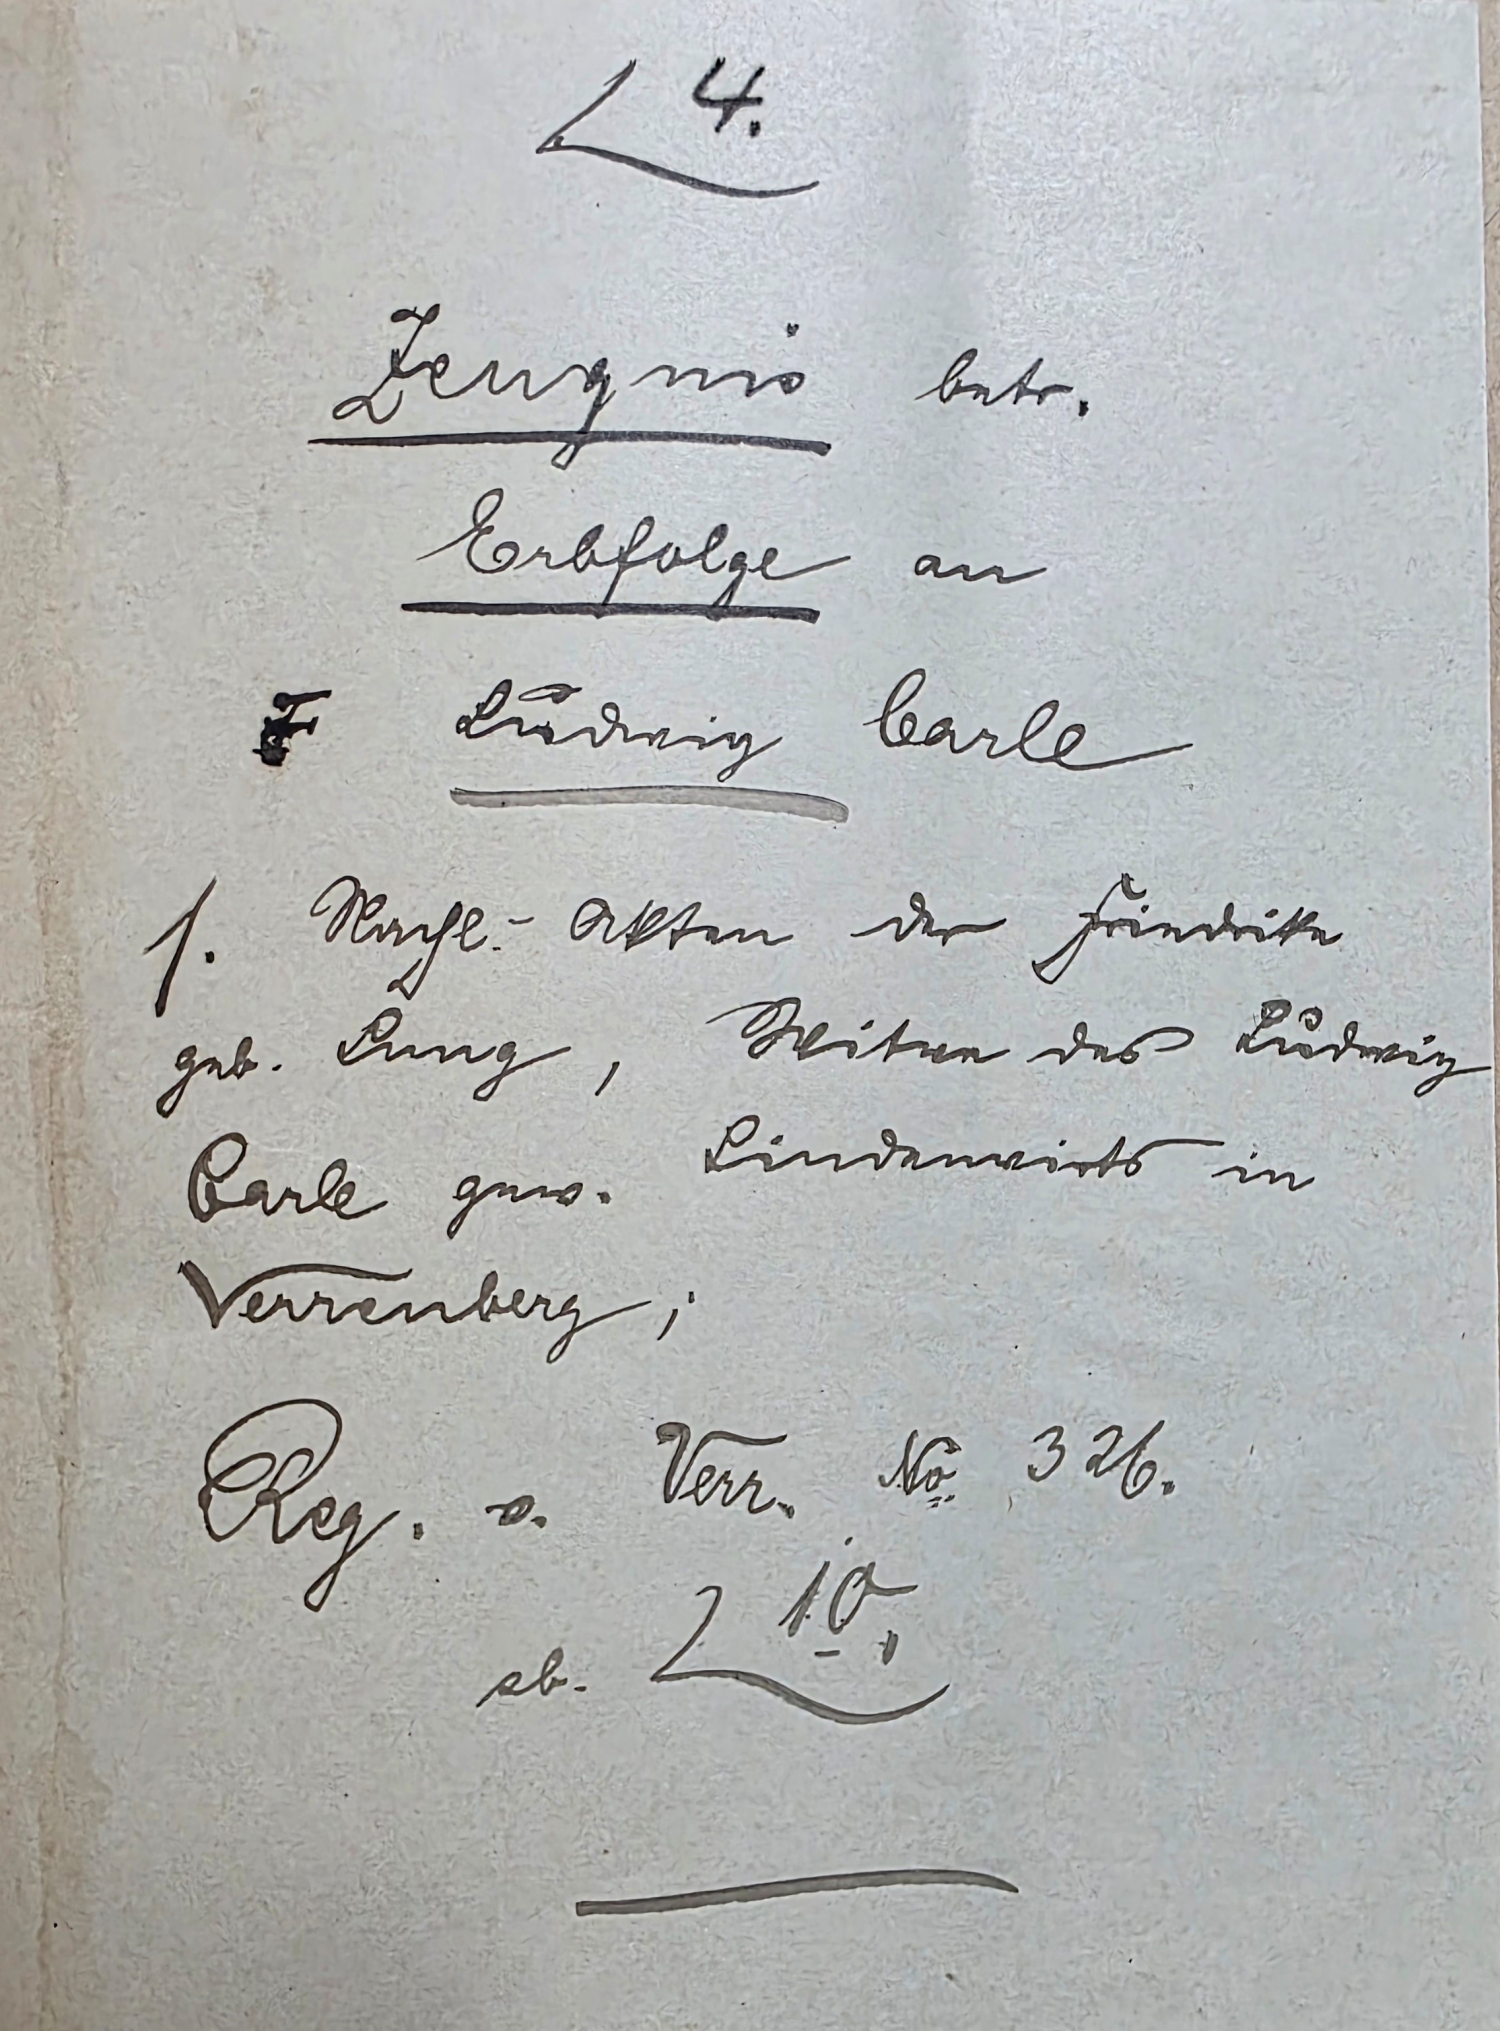 4.
Zeugnis betr.
Erbfolge an
Ludwig Carle
s. Nachl.-Akten der Friedrike
geb. Lung, Witwe des Ludwig
Carle gew. Lindenwirts in
Verrenberg;
Reg. v. Verr. No. 326.
10.